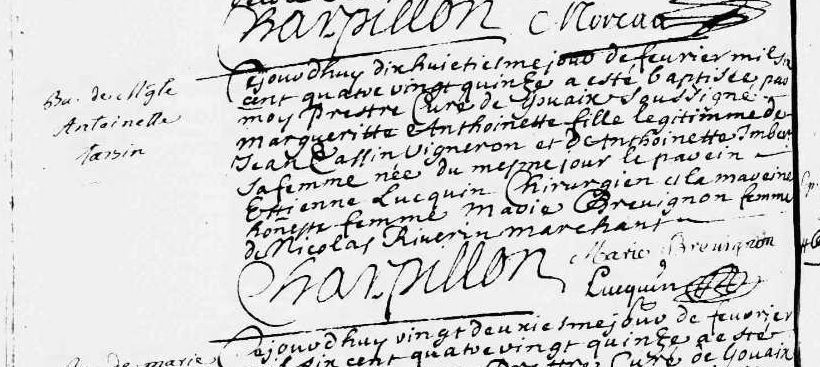 Charpillon Moreau
Bu. de Mgte
Antoinette
Cejourdhuy dix huictiesme jour de feurier mil six
cent quatre vingt quinze a esté baptisée par
moy prestre Curé de Gouaix Soussigné
margueritte Anthoinette fille legitimme de
Jean Cassin Vigneron et de Anthoinette Imbert
sa femme née du mesme jour le parein
Estienne Lucquin Chirurgien & la mareine
honeste femme Marie Breuignon femme
de Nicolas Riverin marchant
Charpillon Marie Breuignon
Lucquin
de marie
Cejourdhuy vingt deuxiesme jour de feurier
six cent quatre vingt quinze a esté
Curé de Gouaix